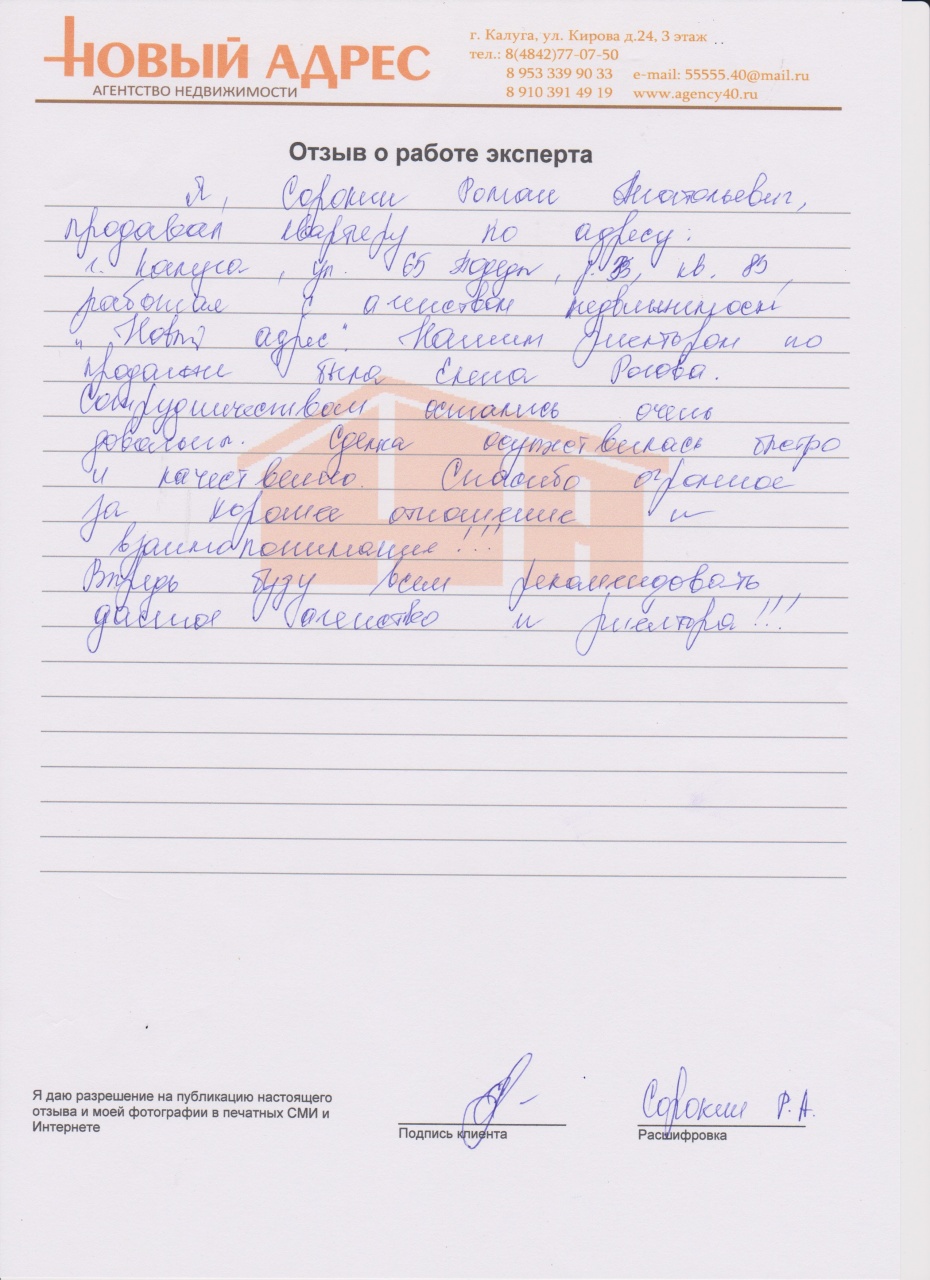 НОВЫЙ АДРЕС
АГЕНТСТВО НЕДВИЖИМОСТИ
г. Калуга, ул. Кирова д.24, 3 этаж
тел.: 8(4842)77-07-50
8 953 339 90 33 e-mail: 55555.40@mail.ru
8 910 391 49 19 www.agency40.ru
Отзыв о работе эксперта
Я, Сорокин Роман Анатольевич,
продавал квартиру по адресу:
г. Калуга, ул. 65 Победы, д. кв. 85,
работал с агенством недвижимости
"Новый адрес". Нашим риелтором по
продаже была Елена Рогова.
Сотрудничеством остались очень
довольны. Сделка осуществилась быстро
и качественно. Спасибо огромное
за хорошее отношение и
взаимопонимание!!!
Впредь буду всем рекомендовать
данное агенство и риелтора!!!
Я даю разрешение на публикацию настоящего
отзыва и моей фотографии в печатных СМИ и
Интернете
Подпись клиента
Сорокин Р.А.
Расшифровка